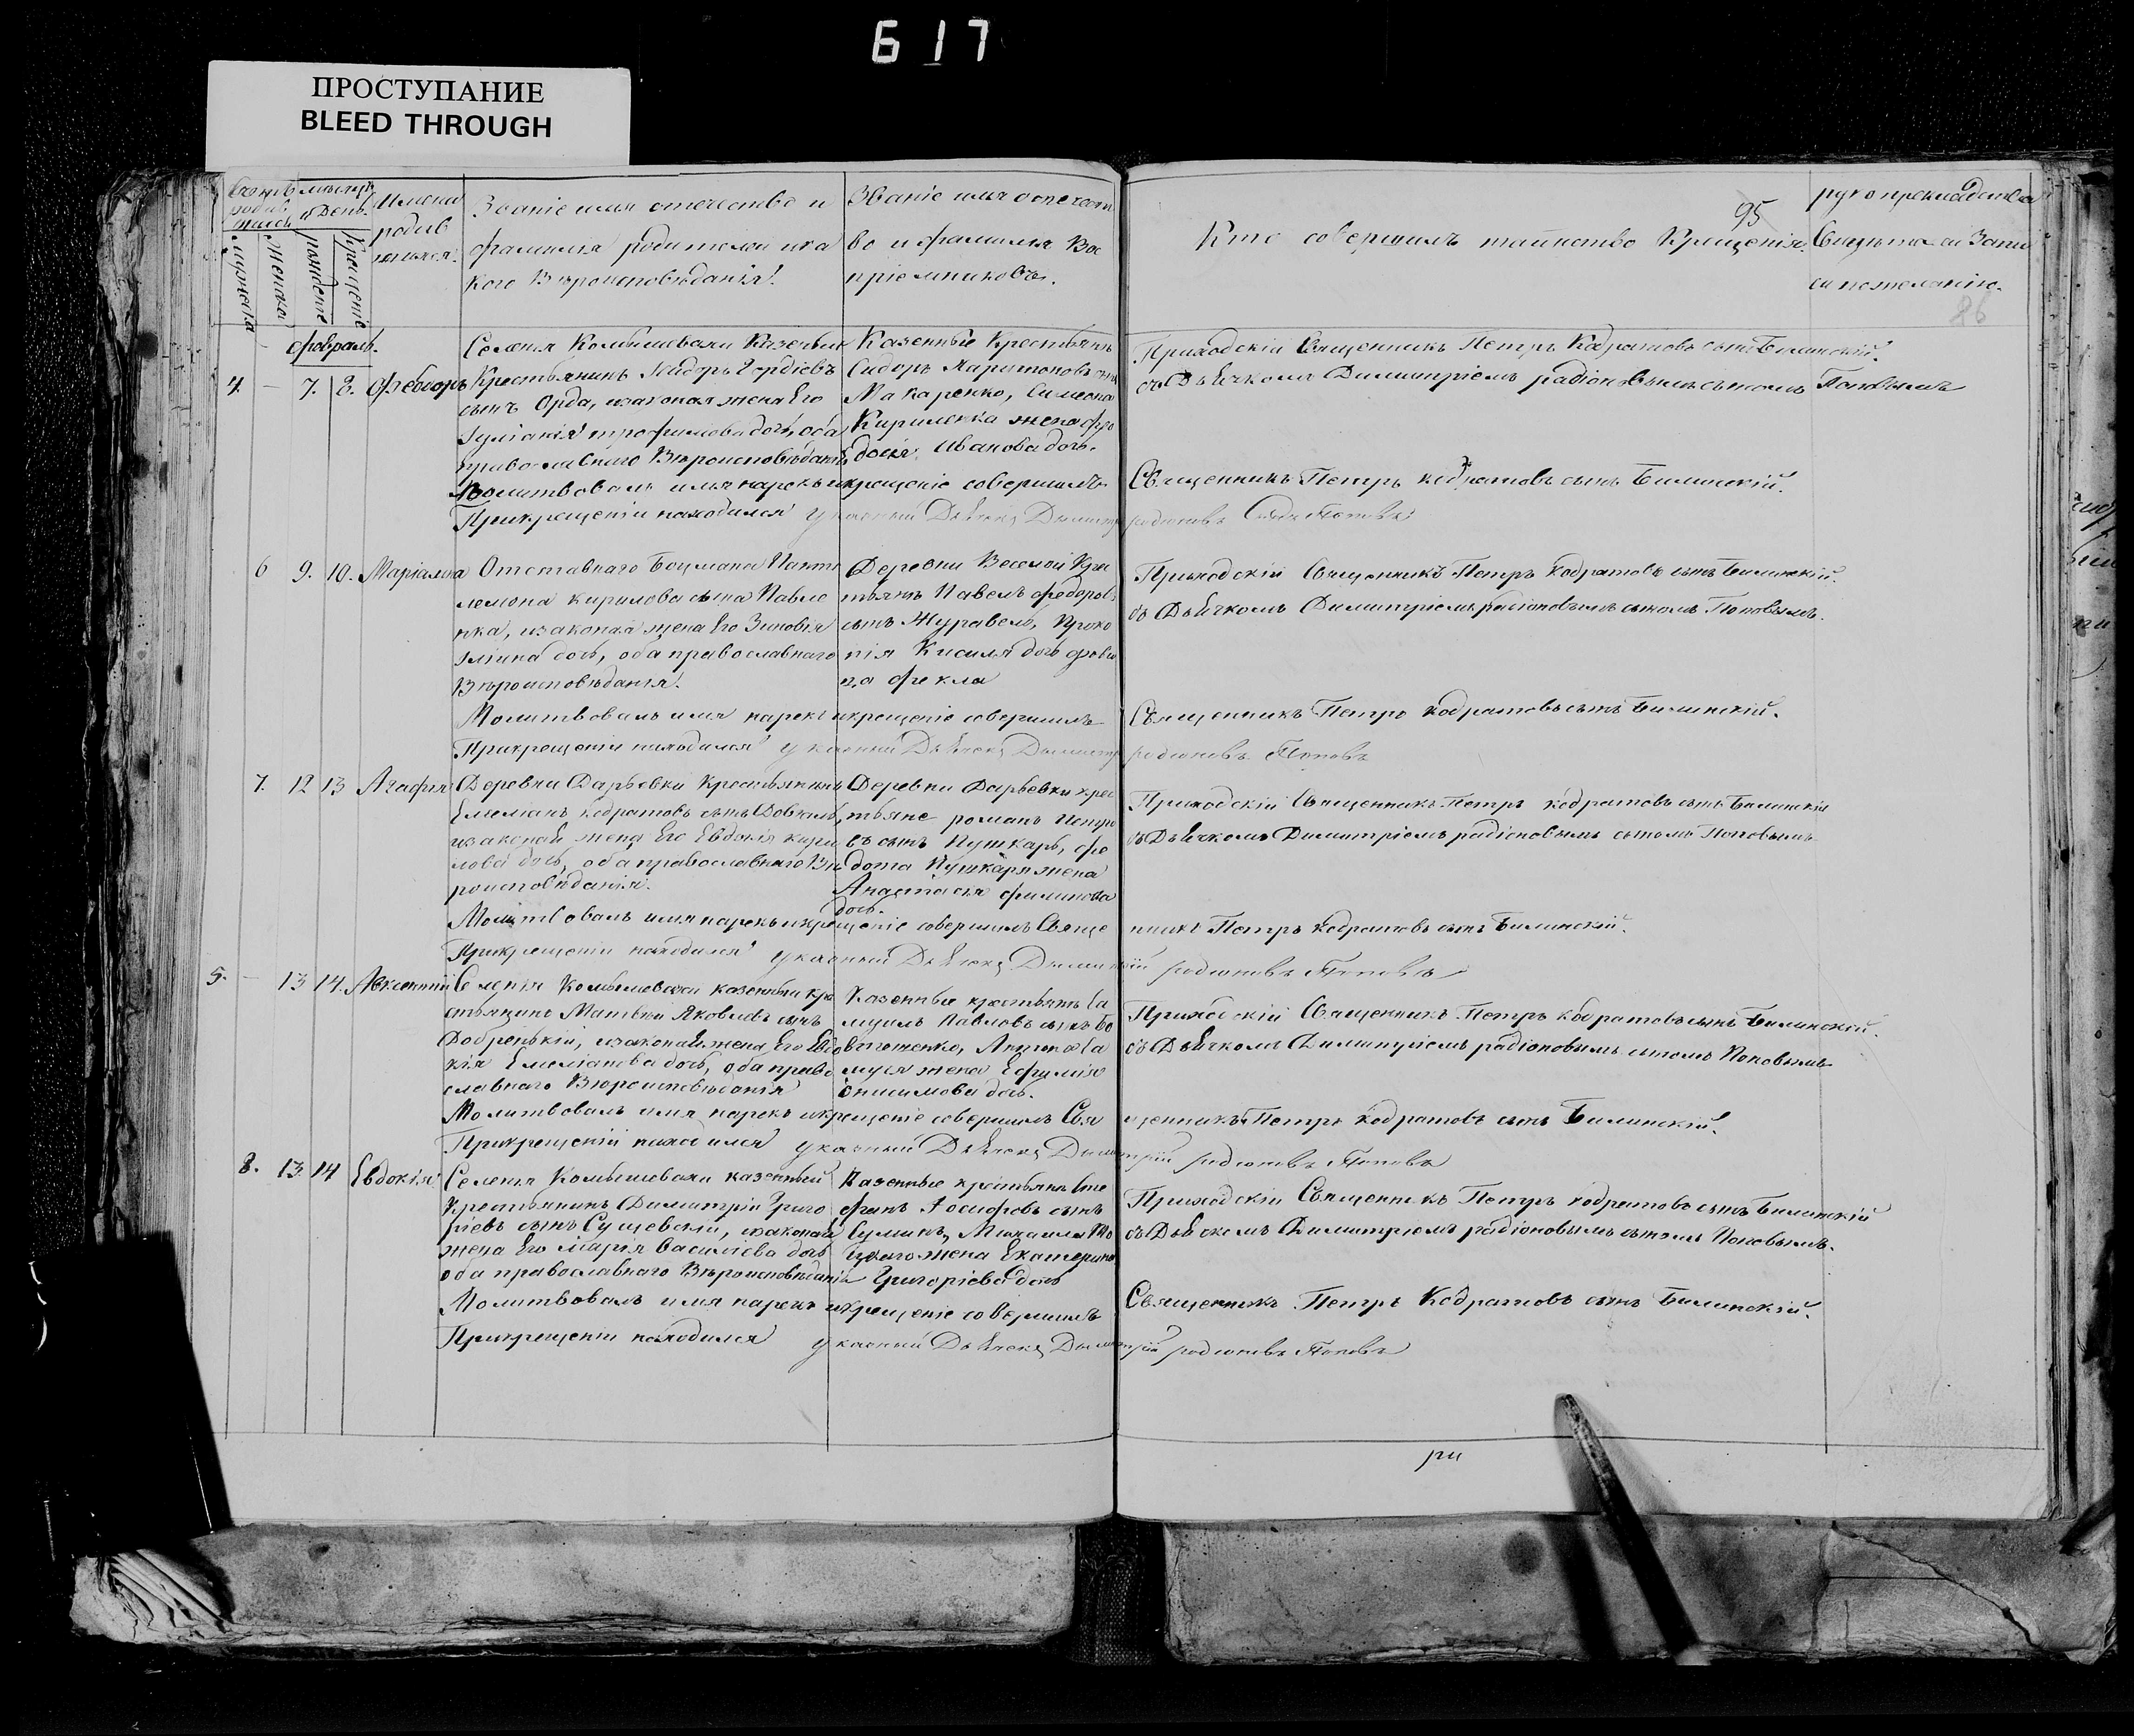 617
ПРОСТУПАНИЕ
BLEED THROUGH
Имена
родив
шихся.
Званіе имя отечество и
фамилія родителей и ка
кого Вѣроисповѣданія.
Званіе имя отечест
во и фамилія Вос
пріемниковъ.
мужеска
женска
рожденіе
крещеніе
95
Кто совершилъ таинство Крещенія.
86
февраль.
4. – 7. 8. Феодоръ
Селенія Комышевахи Казенный
Крестьянинъ Сидоръ Гордіевъ
сынъ Орда, изаконая жена Его
Іуліанія трофимова дочь, оба
православнаго Вѣроисповѣданія
Казенные Крестьянъ
Сидоръ Харитоновъ сынъ
Макаренко, Симеона
Кириленка жена фео
досія Иванова дочь.
Приходскій Священникъ Петръ Кодратовъ сынъ Билинскій.
съ Дьячкомъ Димитріемъ радіоновымъ сыномъ Поповымъ
Молитвовалъ имя нарекъ икрещеніе совершилъ Священникъ Петръ кодратовъ сынъ Билинскій.
Прикрещеніи находился указный Дьячекъ Димитр родіоновъ Сынъ Поповъ
6 9. 10. Маріамна
Отставнаго Боцмана Панте
лемона кирилова сына Павле
нка, изаконая жена Его Зиновія
Ілліина дочь, оба православнаго
Вѣроисповѣданія.
Деревни Веселой Крес
тьянъ Павелъ федоров
сынъ Журавель, Проко
пія Кисиля дочь деви
ца фекла
Приходскій Священникъ Петръ Кодратовъ сынъ Билинскій.
съ Дьячкомъ Димитріемъ радіоновымъ сыномъ Поповымъ.
Молитвовалъ имя нарекъ икрещеніе совершилъ Священникъ Петръ кодратовъ сынъ Билинскій.
Прикрещеніи находился указный Дьячекъ Димитр родіоновъ Поповъ
7. 12 13 Агафія
Деревни Дарьевки крестьянинъ
Емеліанъ кодратовъ сынъ Довгаль,
изаконая жена Его Евдокія кири
лова дочь, оба православнаго Вѣ
роисповѣданія.
Деревни Дарьевки крес
тьяне романъ Петро
въ сынъ Пушкарь, фе
дота Пушкаря жена
Анастасія филипова
дочь.
Приходскій Священникъ Петръ кодратовъ сынъ Билинскій
съ Дьячкомъ Димитріемъ радіоновымъ сыномъ Поповымъ
Молитвовалъ имя нарекъ икрещеніе совершилъ Священникъ Петръ кодратовъ сынъ Билинскій.
Прикрещеніи находился указный Дьячекъ Димитрій родіоновъ Поповъ
5. – 13 14. Авксентій
Селенія Комышевахи казенный кре
стьянинъ Матвей Яковлевъ сынъ
Добренькій, изаконая жена Его Евдо
кія Емеліанова дочь, оба право
славнаго Вѣроисповѣданія
Казенные крестьянъ Са
муилъ Павловъ сынъ Бо
жена Ефимія
Онисимова дочь.
Приходскій Священникъ Петръ кодратовъ сынъ Билинскій.
съ Дьячкомъ Димитріемъ радіоновымъ сыномъ Поповымъ
Молитвовалъ имя нарекъ икрещеніе совершилъ Священникъ Петръ кодратовъ сынъ Билинскій.
Прикрещеніи находился указный Дьячекъ Димитрій родіоновъ Поповъ
8. 13 14 Евдокія
Селенія Комышевахи казенный
Крестьянинъ Димитрій Григо
ріевъ сынъ Сущевскій, изаконая
жена Его Марія Василіева дочь
оба православнаго Вѣроисповѣданія
Казенные крестьянъ Сте
фанъ Іосифовъ сынъ
жена Екатерина
Григоріева дочь
Приходскій Священникъ Петръ кодратовъ сынъ Билинскій
съ Дьячкомъ Димитріемъ радіоновымъ сыномъ Поповымъ.
Молитвовалъ имя нарекъ икрещеніе совершилъ Священникъ Петръ Кодратовъ сынъ Билинскій.
Прикрещеніи находился указный Дьячекъ Димитрій родіоновъ Поповъ
ри